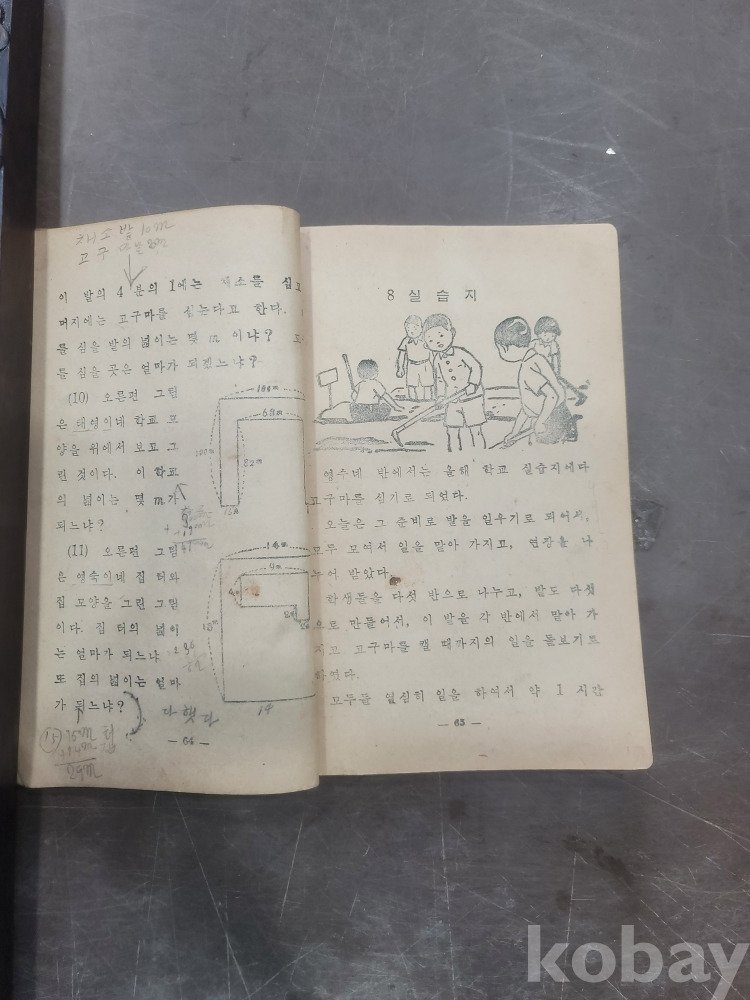 채소밭 10m
고구
이 밭의 4분의 1에는 채소를 심고
머지에는 고구마를 심는다고 한다.
를 심을 밭의 넓이는 몇 m 이냐? 또
를 심을 곳은 얼마가 되겠느냐?
(10) 오른편 그림
은 태성이네 학교 모
양을 위에서 보고 그
린 것이다. 이 학교
의 넓이는 몇 m가
되느냐?
100m
68m
100m
82m
(11) 오른편 그림
은 영숙이네 집 터와
집 모양을 그린 그림
이다. 집 터의 넓이
는 얼마가 되느냐
또 집의 넓이는 얼마
가 되느냐?
14m
9m
15m
다했다
14
29m
— 64 —
8 실습지
영수네 반에서는 올해 학교 실습지에다
고구마를 심기로 되었다.
오늘은 그 준비로 밭을 일우기로 되어서,
모두 모여서 일을 맡아 가지고, 연장을 나
누어 받았다.
학생들을 다섯 반으로 나누고, 밭도 다섯
으로 만들어서, 이 밭을 각 반에서 맡아 가
지고 고구마를 캘 때까지의 일을 돌보기로
하였다.
모두들 열심히 일을 하여서 약 1 시간
— 63 —
kobay